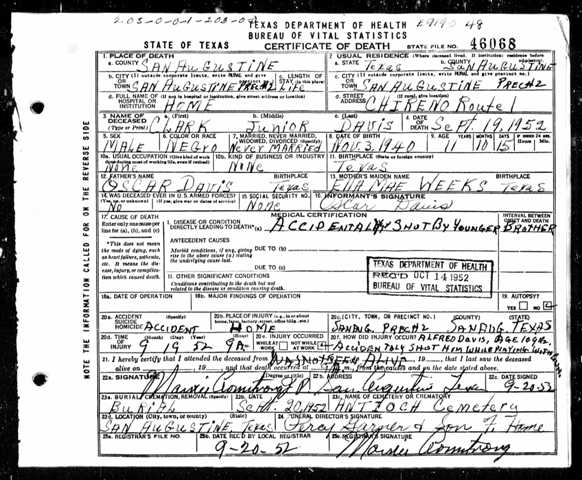 2-03-0-0-1-203-0
TEXAS DEPARTMENT OF HEALTH
BUREAU OF VITAL STATISTICS
STATE OF TEXAS CERTIFICATE OF DEATH STATE FILE NO. 46068
1. PLACE OF DEATH 2. USUAL RESIDENCE (Where deceased lived. If institution: residence before admission)
a. COUNTY SAN AUGUSTINE a. STATE Texas b. COUNTY SAN AUGUSTINE
b. CITY (If outside corporate limits, write RURAL and give precinct no.) c. LENGTH OF STAY c. CITY (If outside corporate limits, write RURAL and give precinct no.)
TOWN SAN AUGUSTINE PRECH 2 Life TOWN SAN AUGUSTINE PRECH 2
d. FULL NAME OF (If not in hospital or institution, give street address or location) d. STREET ADDRESS
HOSPITAL OR INSTITUTION HOME CHIRENO Route 1
3. NAME OF DECEASED a. (First) b. (Middle) c. (Last) 4. DATE OF DEATH
(Type or Print) CLARK Junior DAVIS Sept. 19, 1952
5. SEX 6. COLOR OR RACE 7. MARRIED, NEVER MARRIED, WIDOWED, DIVORCED (Specify) 8. DATE OF BIRTH 9. AGE YEARS MONTHS DAYS
MALE NEGRO NEVER MARRIED NOV. 3. 1940 11 10 15
10a. USUAL OCCUPATION (Give kind of work done during most of working life, even if retired) 10b. KIND OF BUSINESS OR INDUSTRY 11. BIRTHPLACE (State or foreign country)
None NONE Texas
12. FATHER'S NAME BIRTHPLACE 13. MOTHER'S MAIDEN NAME BIRTHPLACE
OSCAR DAVIS Texas ELLA MAE WEEKS Texas
14. WAS DECEASED EVER IN U.S. ARMED FORCES? 15. SOCIAL SECURITY NO. 16. INFORMANT'S SIGNATURE
(Yes, no, or unknown) (If yes, give war or dates of service)
No None Oscar Davis
17. CAUSE OF DEATH MEDICAL CERTIFICATION INTERVAL BETWEEN ONSET AND DEATH
Enter only one cause per line for (a), (b), and (c)
I. DISEASE OR CONDITION DIRECTLY LEADING TO DEATH* (a) ACCIDENTALLY SHOT BY YOUNGER BROTHER
*This does not mean the mode of dying, such as heart failure, asthenia, etc. It means the disease, injury, or complication which caused death.
ANTECEDENT CAUSES
Morbid conditions, if any, giving rise to the above cause (a) stating the underlying cause last.
DUE TO (b)
DUE TO (c)
II. OTHER SIGNIFICANT CONDITIONS
Conditions contributing to the death but not related to the disease or condition causing death.
TEXAS DEPARTMENT OF HEALTH
REC'D OCT 14 1952
BUREAU OF VITAL STATISTICS
18a. DATE OF OPERATION 18b. MAJOR FINDINGS OF OPERATION 19. AUTOPSY?
YES NO
20a. ACCIDENT SUICIDE HOMICIDE (Specify) 20b. PLACE OF INJURY (e.g., in or about home, farm, factory, street, office bldg., etc.) 20c. (CITY, TOWN, OR PRECINCT NO.) (COUNTY) (STATE)
ACCIDENT HOME SANAUG. PRECH 2 SANAUG. TEXAS
20d. TIME OF INJURY 20e. INJURY OCCURRED 20f. HOW DID INJURY OCCUR? ALFRED DAVIS, AGE 10 yrs.
9 19 52 WHILE AT WORK NOT WHILE AT WORK ACCIDENTALY SHOT HIM WHILE PLAYING WITH
21. I hereby certify that I attended the deceased from WAS NOT SEEN ALIVE 19 , that I last saw the deceased
alive on , 19 , and that death occurred at m., from the causes and on the date stated above.
22a. SIGNATURE (Degree or title) 22b. ADDRESS 22c. DATE SIGNED
Armstrong San Augustine Texas 9-20-52
23a. BURIAL, CREMATION, REMOVAL (Specify) 23b. DATE 23c. NAME OF CEMETERY OR CREMATORY
BURIAL Sept. 20, 1952 ANTIOCH Cemetery
23d. LOCATION (City, town, or county) (State) 24. FUNERAL DIRECTOR'S SIGNATURE
SAN AUGUSTINE, Texas Percy Garner & Son F. Home
25a. REGISTRAR'S FILE NO. 25b. DATE REC'D BY LOCAL REGISTRAR 25c. REGISTRAR'S SIGNATURE
9-20-52 Armstrong
NOTE THE INFORMATION CALLED FOR ON THE REVERSE SIDE